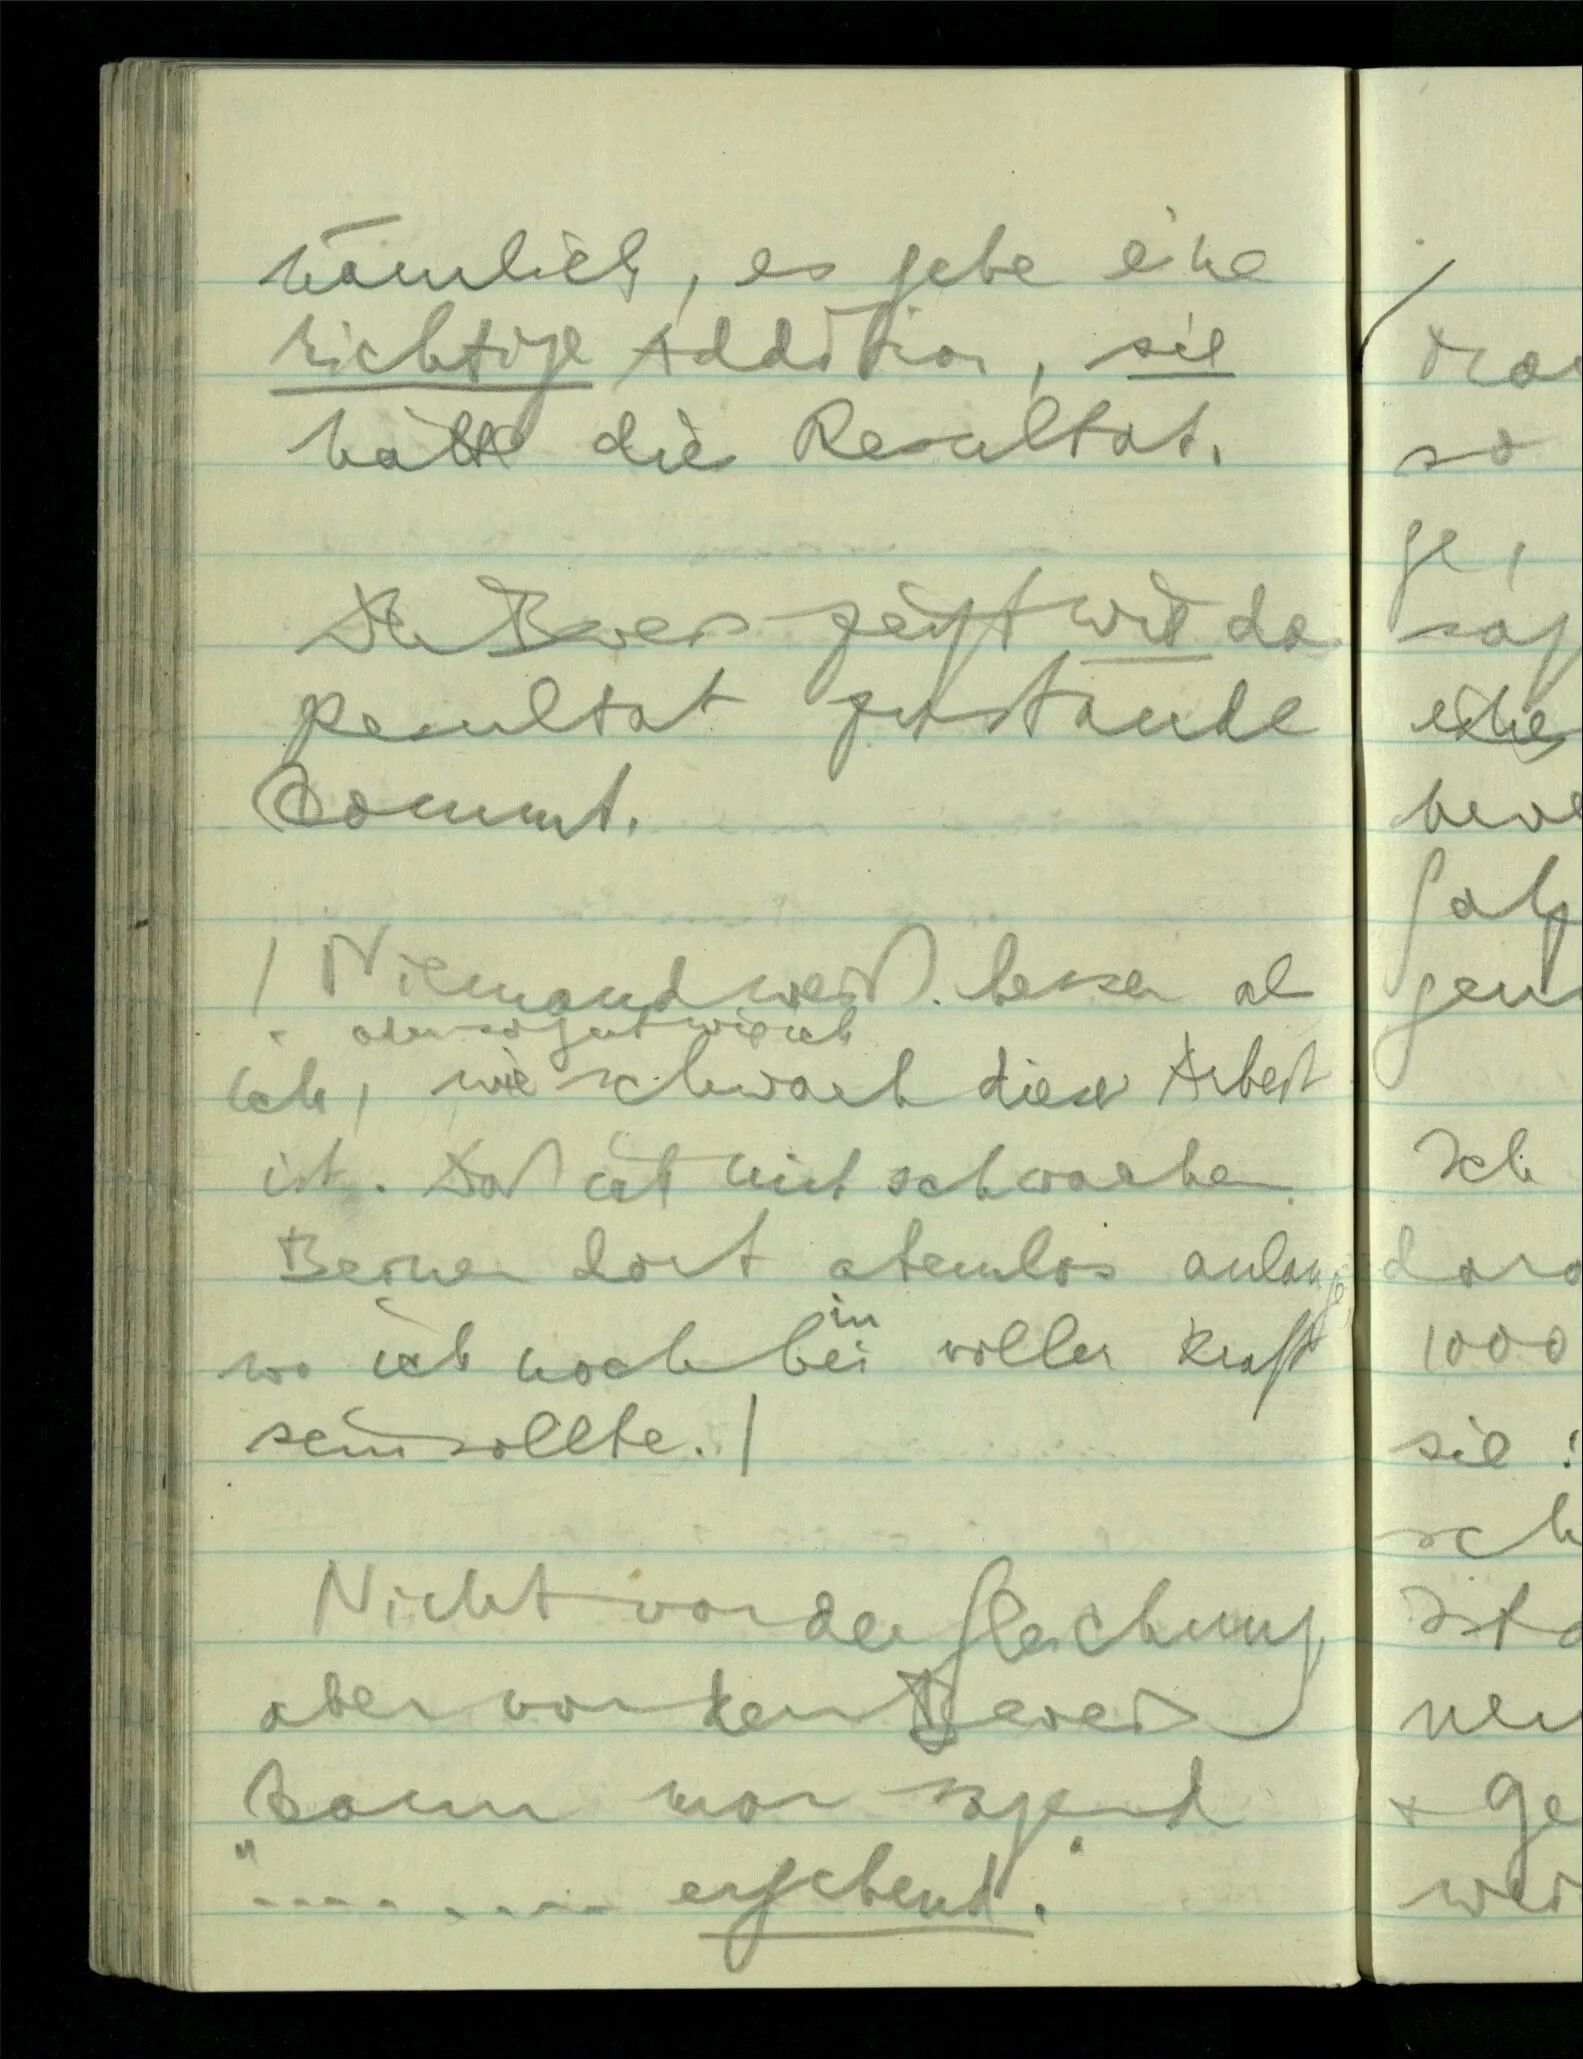 nämlich, es gebe eine
richtige Addition, sie
hätte die Resultat.
Der Beweis zeigt wie da
Resultat zustande
kommt.
/ Niemand weiß besser al
oder so gut wie ich
ich, wie schwach diese Arbeit
ist. Daß ich mit schwachen
Beinen dort atemlos anlange,
wo ich noch bei in voller Kraft
sein sollte. /
Nicht von der Gleichung,
aber von dem Beweis
kann man sagen
"........ ergebend."
so
ge,
Ich
1000
sie !